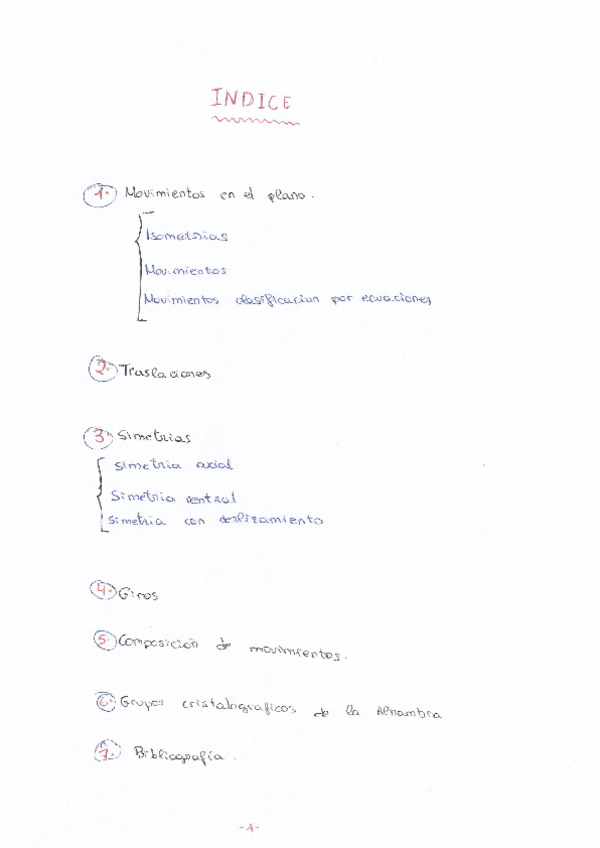 INDICE
1. Movimientos en el plano.
Isometrias
Movimientos
Movimientos clasificacion por ecuaciones
2. Traslaciones
3. Simetrias
Simetria axial
Simetria central
Simetria con deslizamiento
4. Giros
5. Composición de movimientos.
6. Grupos cristalograficos de la Alhambra
7. Bibliografía.
-1-